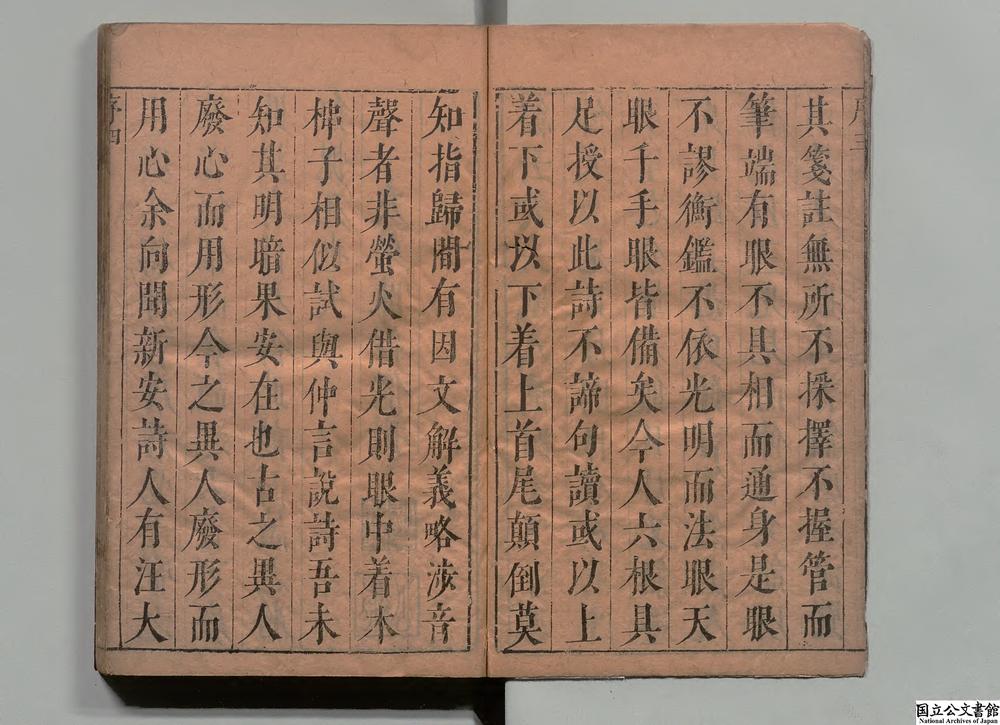 其箋註無所不採擇不握管而
筆端有眼不具相而通身是眼
不謬衡鑑不依光明而法眼天
眼千手眼皆備矣今人六根具
足授以此詩不諦句讀或以上
着下或以下着上首尾顛倒莫
知指歸間有因文解義略涉音
聲者非螢火借光則眼中着木
柹子相似試與仲言說詩吾未
知其明暗果安在也古之異人
廢心而用形今之異人廢形而
用心余向聞新安詩人有汪大
序四
国立公文書館
National Archives of Japan